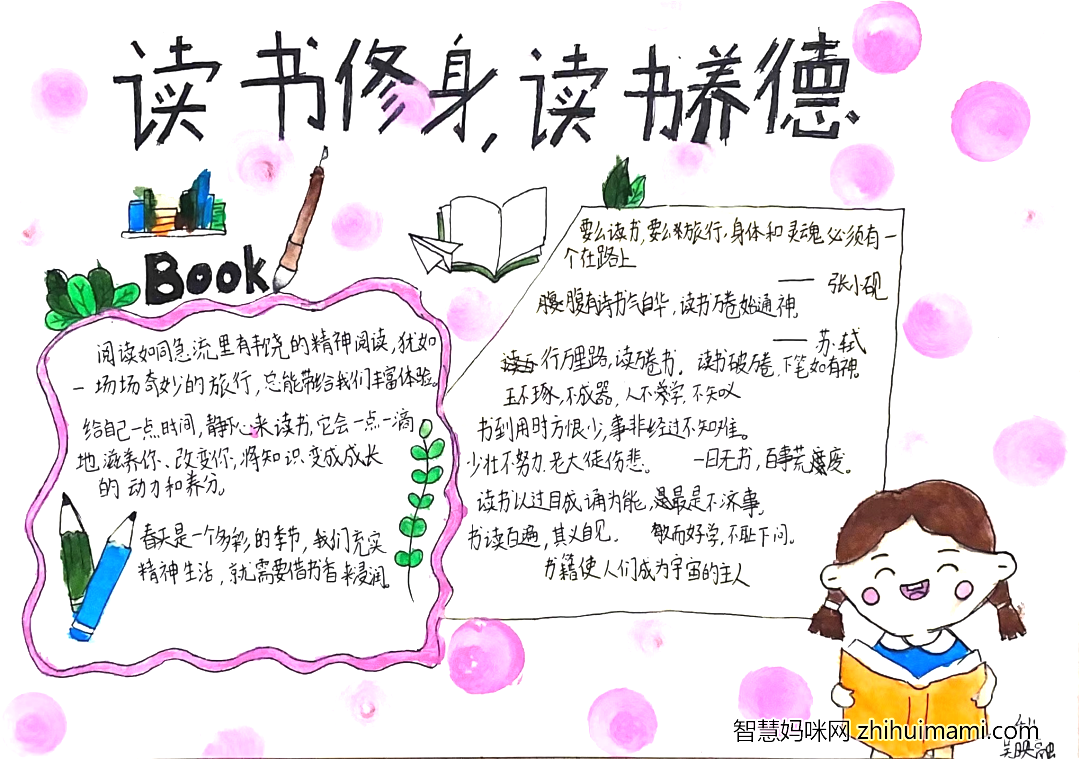 读书修身,读书养德、
Book
阅读如同急流里有却尧的精神阅读,犹如
一场场奇妙的旅行,总能带给我们丰富体验。
给自己一点时间,静下心来读书,它会一点一滴
地滋养你、改变你,将知识变成成长
的动力和养分。
春天是一个多彩的季节,我们充实
精神生活,就需要借书香来浸润。
要么读书,要么旅行,身体和灵魂,必须有一
个在路上
—— 张小砚
腹有诗书气自华,读书万卷始通神。
—— 苏轼
行万里路,读万卷书。 读书破万卷,下笔如有神。
玉不琢,不成器,人不学,不知义
书到用时方恨少,事非经过不知难。
少壮不努力,老大徒伤悲。 一日无书,百事荒废。
读书以过目成诵为能,最是不济事。
书读百遍,其义自见。 敏而好学,不耻下问。
书籍使人们成为宇宙的主人
智慧妈咪网 zhihuimami.com